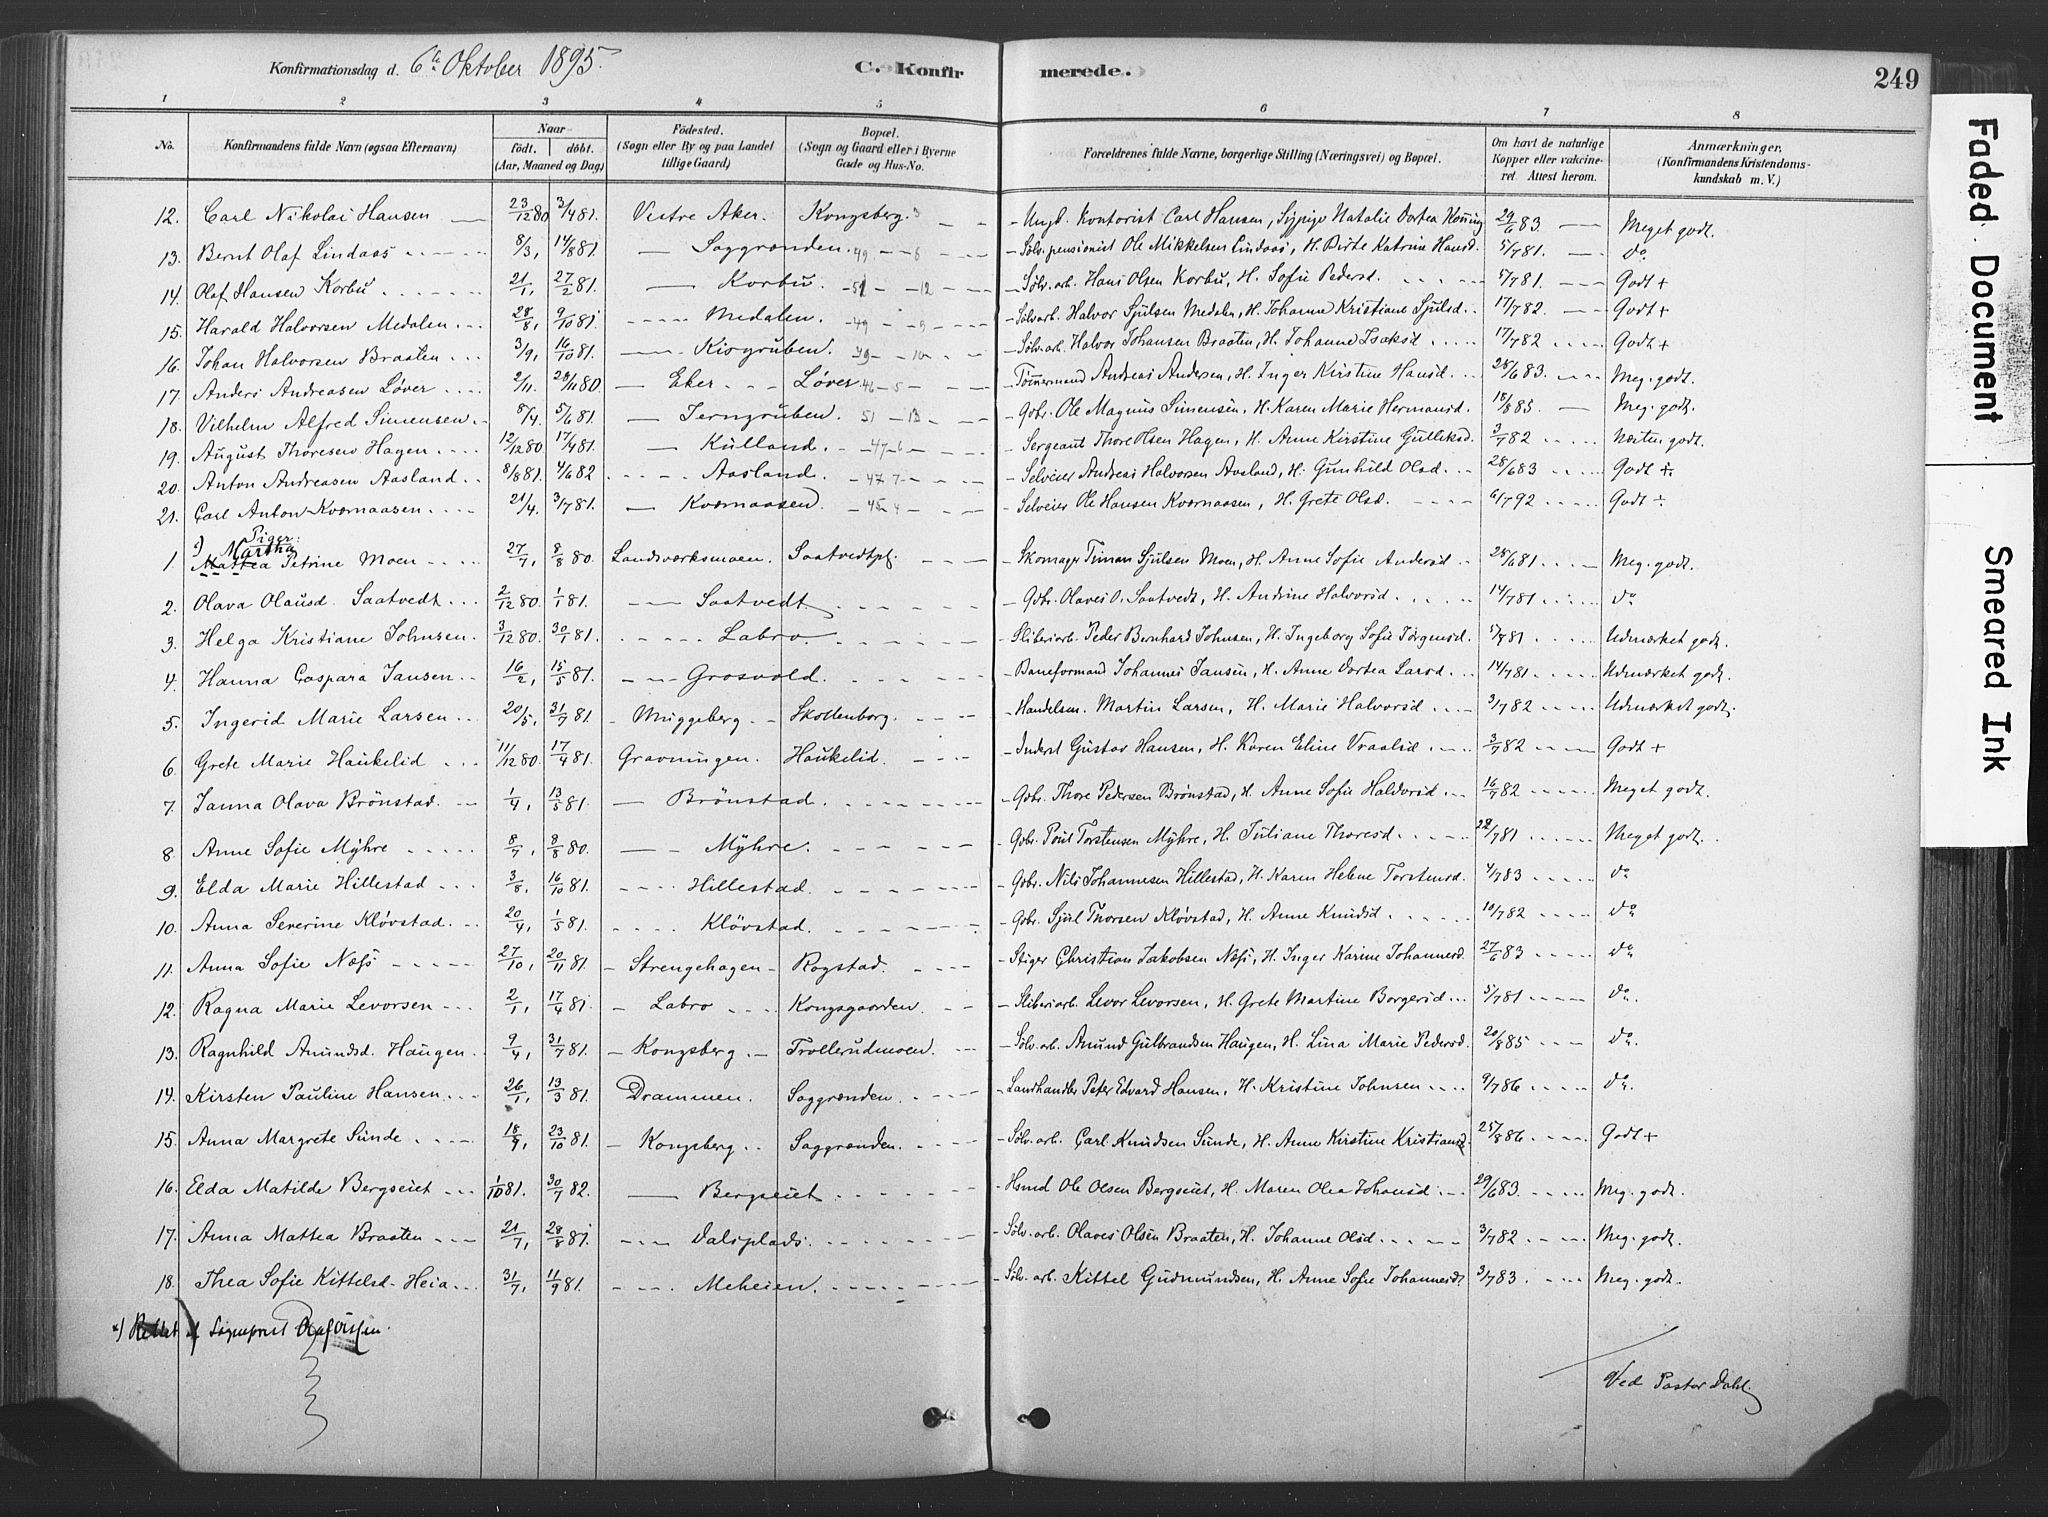 Konfirmationsdag d. 6te Oktober 1895.
C. Konfirmerede.
249
1 2 3 4 5 6 7 8
No. Konfirmandens fulde Navn (ogsaa Efternavn) Naar født. døbt. (Aar, Maaned og Dag) Fødested. (Sogn eller By og paa Landet tillige Gaard) Bopæl. (Sogn og Gaard eller i Byerne Gade og Hus-No. Forældrenes fulde Navne, borgerlige Stilling (Næringsvei) og Bopæl. Om havt de naturlige Kopper eller vakcineret. Attest herom. Anmærkninger. (Konfirmandens Kristendomskundskab m. V.)
12. Carl Nikolai Hansen 23/12 80 3/4 81. Vestre Aker. Kongsberg. 3 Ungk. Kontorist Carl Hansen, Sypige Natalie Dortea 29/6 83. Meget godt.
13. Bernt Olaf Lindaas 8/3, 14/8 81. Saggrænden. 49 - 6 Sølv.pensionist Ole Mikkelsen Lindaas, H. Birte Katrine Hansd. 5/7 81. do
14. Olaf Hansen Korbu 21/1, 27/2 81. Korbu. 51 - 12 Sølv.arb. Hans Olsen Korbu, H. Sofie Pedersd. 5/7 81. Godt +
15. Harald Halvorsen Medalen 28/8, 9/10 81 Medalen. 49 - 9 Sølvarb. Halvor Sjulsen Medalen, H. Johanne Kristiane Sjulsd. 17/7 82. Godt +
16. Johan Halvorsen Braaten 3/9, 16/10 81. Kisgruben. 49 - 10 Sølv.arb. Halvor Johansen Braaten, H. Johanne Isaksd. 17/7 82 Godt +
17. Anders Andreasen Løver 2/11. 28/11 80 Eker Løver 46 - 5 Tømmermand Andreas Andersen, H. Inger Kirstine Hansd. 28/6 83. Meg. godt.
18. Vilhelm Alfred Simensen 8/4. 5/6 81. Jerngruben. 51 - 13 Gbr. Ole Magnus Simensen, H. Karen Marie Hermansd. 18/8 85. Meg. godt.
19. August Thoresen Hagen 12/12 80 17/4 81. Kulland. 47 - 6 Sergeant Thore Olsen Hagen, H. Anne Kirstine Gulliksd. 3/7 82 Næsten godt.
20. Anton Andreasen Aasland 8/8 81. 4/6 82 Aasland. 47 7 Selveier Andreas Halvorsen Aasland, H. Gunhild Olsd. 28/6 83 Godt ÷
21. Carl Anton Kværnaasen 21/4. 3/7 81. Kværnaasen. 45 4 Selveier Ole Hansen Kværnaasen, H. Grete Olsd. 6/7 92 Godt ÷
Piger:
x) Martha
1. Mattea Petrine Moen 27/7, 8/8 80. Landsværksmoen. Saatvedtpl. Skomager Timan Sjulsen Moen, H. Anne Sofie Andersd. 28/6 81. Meg. godt.
2. Olava Olausd. Saatvedt 2/12 80. 1/1 81. Saatvedt Gbr. Olaves O. Saatvedt, H. Andrine Halvorsd. 14/7 81. do
3. Helga Kristiane Johnsen 3/12 80. 30/1 81. Labro. Sliberiarb. Peder Bernhard Johnsen, H. Ingeborg Sofie Jörgensd. 5/7 81 Udmærket godt.
4. Hanna Caspara Jansen 16/2, 15/5 81. Grosvold. Baneformand Johannes Jansen, H. Anne Dortea Larsd. 14/7 81 Udmærket godt.
5. Ingerid Marie Larsen 20/5, 31/7 81. Muggeberg Skollenborg. Handelsm. Martin Larsen, H. Marie Halvorsd. 3/7 82 Udmærket godt.
6. Grete Marie Haukelid 11/12 80. 17/4 81. Gravningen. Haukelid. Inderst Gustav Hansen, H. Karen Eline Vraalsd. 3/7 82 Godt +
7. Janna Olava Brönstad. 1/4, 13/5 81. Brönstad. Gbr. Thore Pedersen Brönstad, H. Anne Sofie Halvorsd. 16/7 82 Meget godt.
8. Anne Sofie Myhre 8/7, 8/8 80. Myhre. Gbr. Poul Torstensen Myhre, H. Juliane Thoresd. 22/7 81 Meget godt.
9. Elda Marie Hillestad 3/8, 16/10 81. Hillestad. Gbr. Nils Johannesen Hillestad, H. Karen Helene Torstensd. 4/7 83 do
10. Anna Severine Kløvstad 20/4, 1/5 81. Kløvstad. Gbr. Sjul Thorsen Kløvstad, H. Anne Knudsd. 10/7 82 do
11. Anna Sofie Næss 27/10, 20/11 81. Strengehagen Rogstad. Stiger Christian Jakobsen Næss, H. Inger Karine Johannesd. 27/6 83 do
12. Ragna Marie Levorsen 2/1, 17/4 81. Labro Kongsgaarden. Sliberiarb. Levor Levorsen, H. Grete Martine Borgersd. 5/7 81 do.
13. Ragnhild Amundsd. Haugen 9/4, 31/7 81. Kongsberg Trollerudmoen. Sølv.arb. Amund Gulbrandsen Haugen, H. Lina Marie Pedersd. 20/8 85 do.
14. Kirsten Pauline Hansen 26/1, 13/3 81. Drammen. Saggrænden. Landhandler Peter Edvard Hansen, H. Kristine Johnsen 9/7 86 do.
15. Anna Margrete Sunde 18/9, 23/10 81. Kongsberg Saggrænden. Sølv.arb. Carl Knudsen Sunde, H. Anne Kirstine Kristiansd. 25/8 86. Godt +
16. Elda Matilde Bergseiet 1/10 81. 30/7 82. Bergseiet Hsmd Ole Olsen Bergseiet, H. Maren Olea Johansd. 29/6 83. Meg. godt.
17. Anna Mattea Braaten 21/7, 28/8 81 Dalsplads. Sølv.arb. Olaves Olsen Braaten, H. Johanne Olsd. 3/7 82 Meg. godt.
18. Thea Sofie Kittelsd. Heia 31/7, 11/9 81. Meheien. Sølv.arb. Kittel Gudmundsen, H. Anne Sofie Johannesd. 3/7 83. Meg. godt.
x) Rettet af Sogneprest
Ved Pastor Dahl.
Faded Document
Smeared Ink